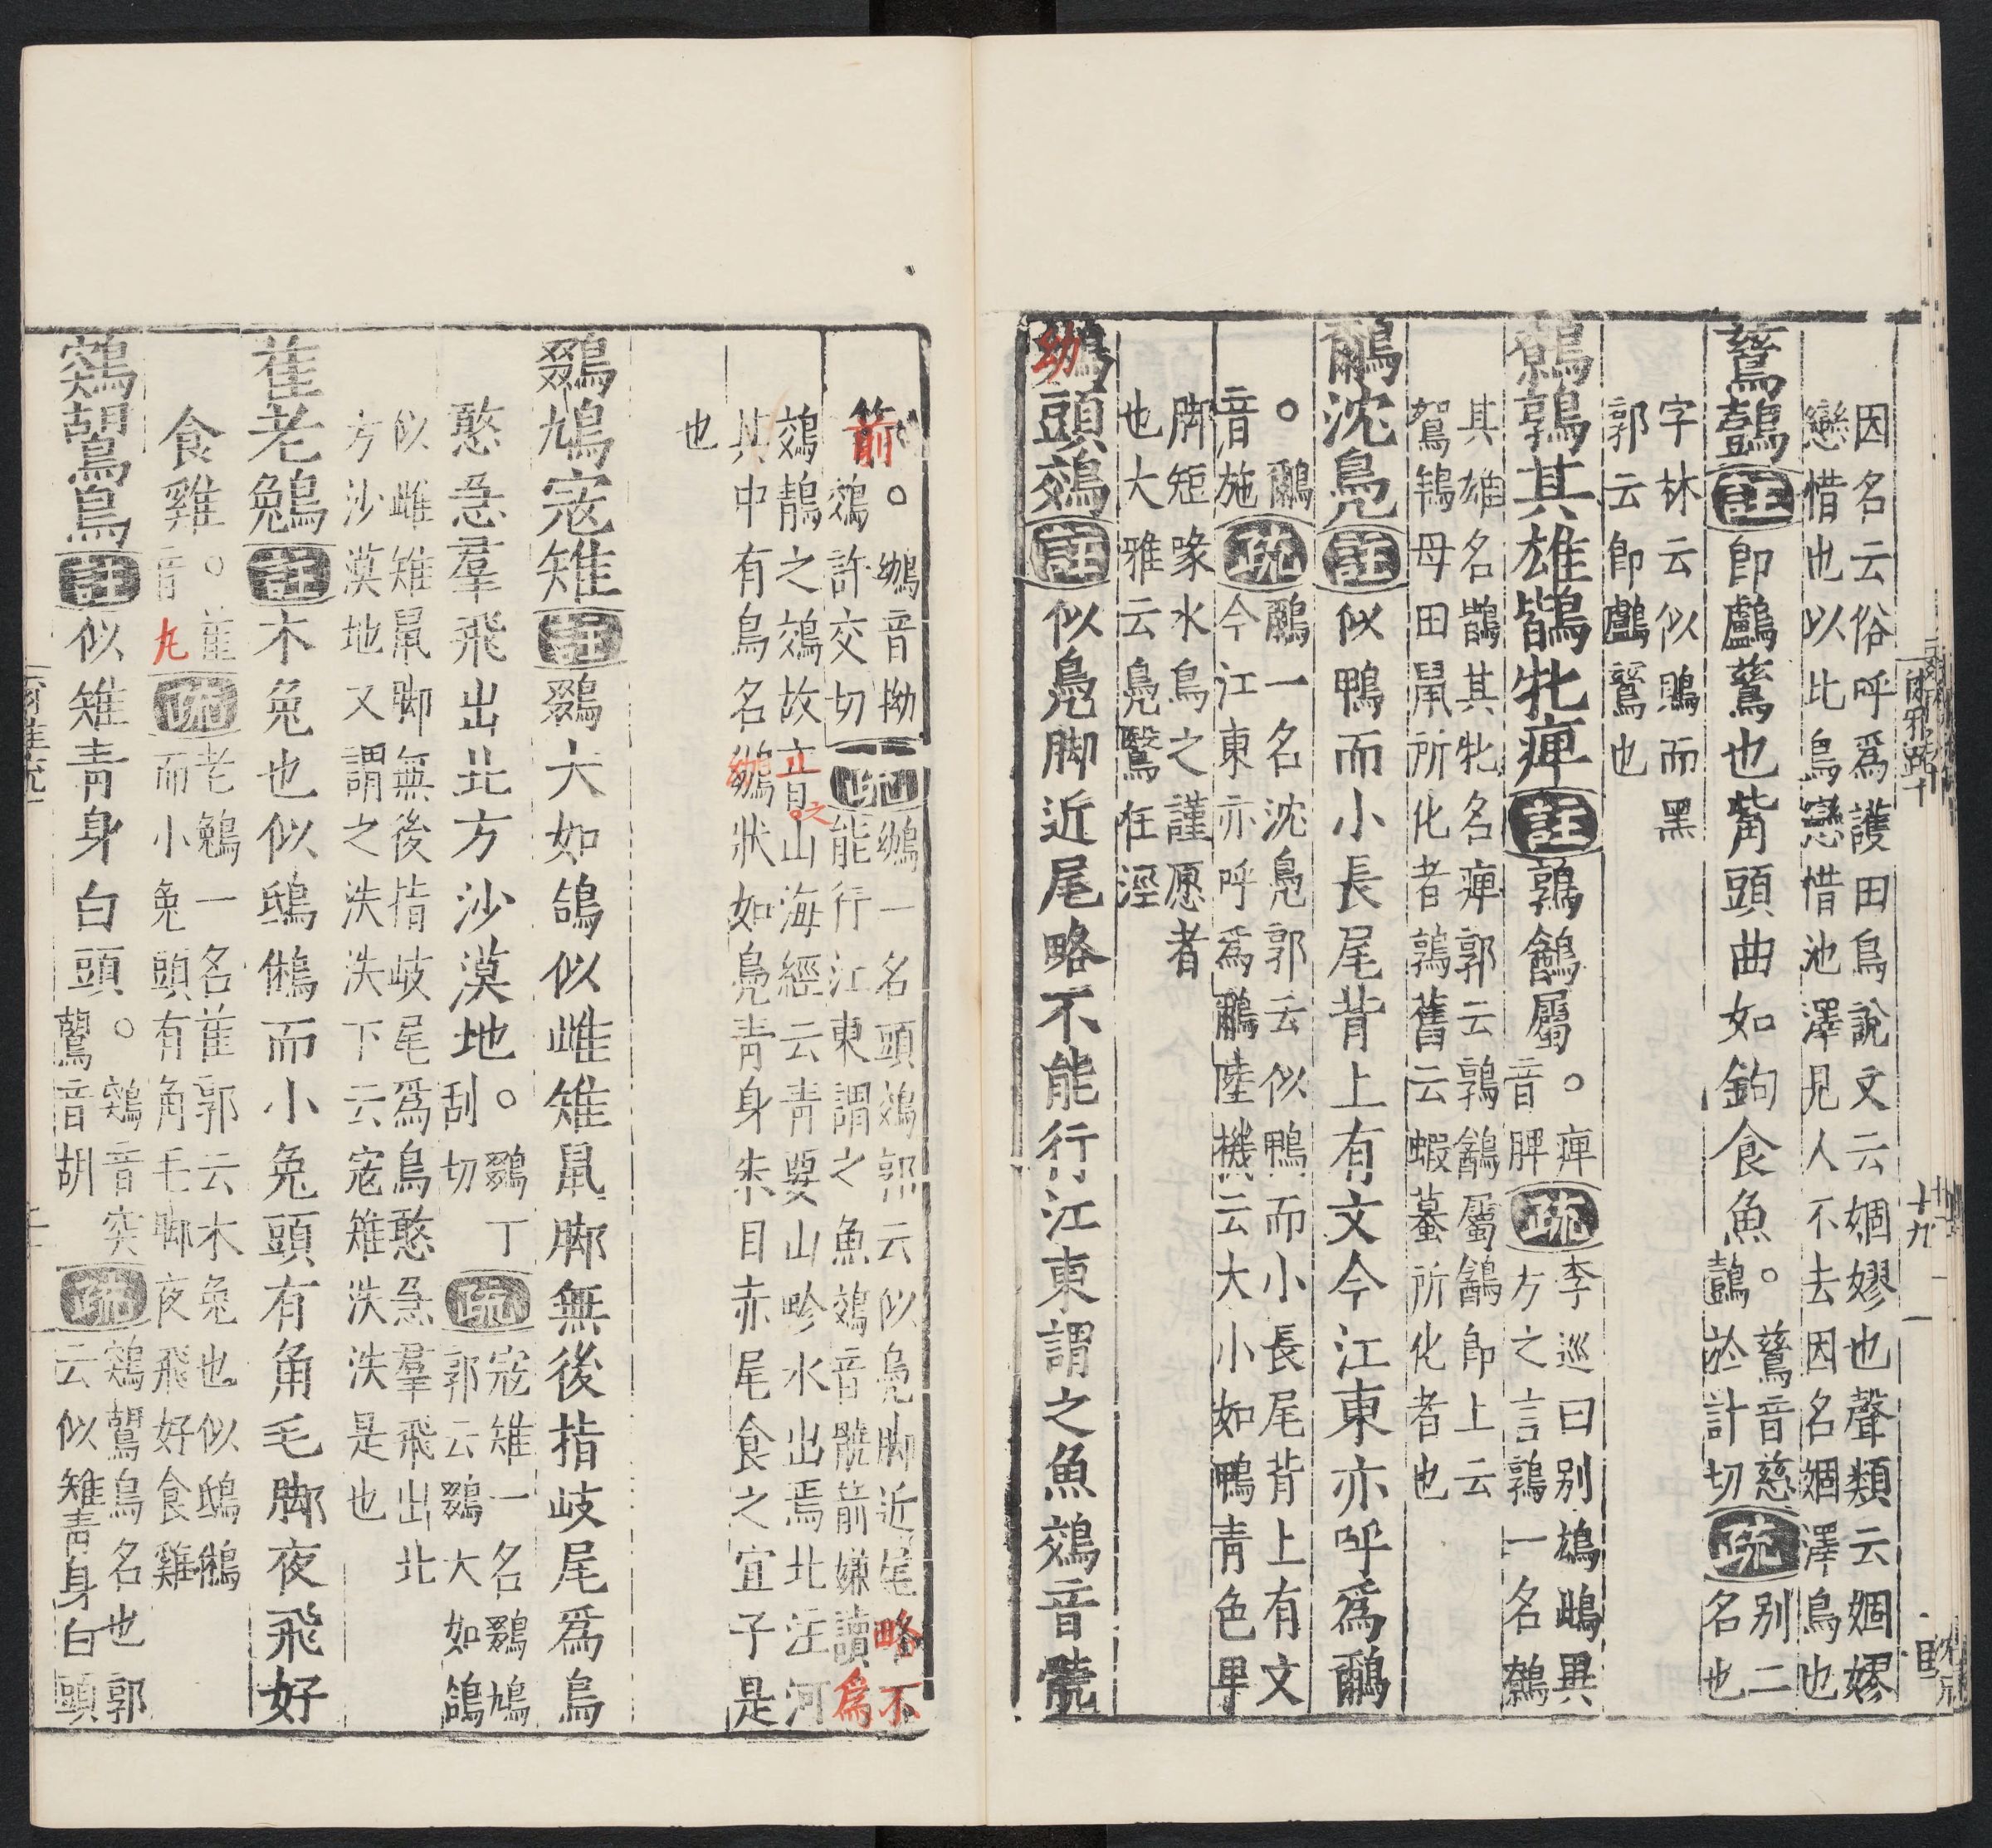 因名云俗呼爲護田鳥說文云婟嫪也聲類云婟嫪
戀惜也以此鳥戀惜池澤見人不去因名婟澤鳥也
鶿鷧註即鸕鶿也觜頭曲如鉤食魚。鶿音慈鷧於計切疏别二名也
字林云似鶂而黑
郭云即鸕鶿也
鷯鶉其雄鶛牝痺註鶉䳺屬。痺音脾疏李巡曰别鴆鴫異方之言鶉一名鷯
其雄名鶛其牝名痺郭云鶉䳺屬䳺即上云
鴽鴾母田鼠所化者鶉舊云蝦蟇所化者也
鸍沈鳧註似鴨而小長尾背上有文今江東亦呼爲鸍
。鸍音施疏鸍一名沈鳧郭云似鴨而小長尾背上有文今江東亦呼爲鸍陸機云大小如鴨靑色畢
脚短喙水鳥之謹愿者
也大雅云鳧鷖在涇
幼頭鵁註似鳧脚近尾略不能行江東謂之魚鵁音髐
箭。䳑音拗鵁許交切疏䳑一名頭鵁郭云似鳧脚近尾略不能行江東謂之魚鵁音髐箭嫌讀爲
鵁鶄之鵁故音之山海經云靑要山畛水出焉北注河
其中有鳥名䳑狀如鳧靑身朱目赤尾食之宜子是
也
鵽鳩寇雉註鵽大如鴿似雌雉鼠脚無後指岐尾爲鳥
憨急羣飛出北方沙漠地。鵽丁刮切疏寇雉一名鵽鳩郭云鵽大如鴿
似雌雉鼠脚無後指岐尾爲鳥憨急羣飛出北
方沙漠地又謂之泆泆下云寇雉泆泆是也
萑老鵵註木兔也似鴟鵂而小兔頭有角毛脚夜飛好
食雞。萑音丸疏老鵵一名萑郭云木兔也似鴟鵂而小兔頭有角毛脚夜飛好食雞
鶟鶘鳥註似雉靑身白頭。鶟音突鶘音胡疏鶟鶘鳥名也郭云似雉靑身白頭